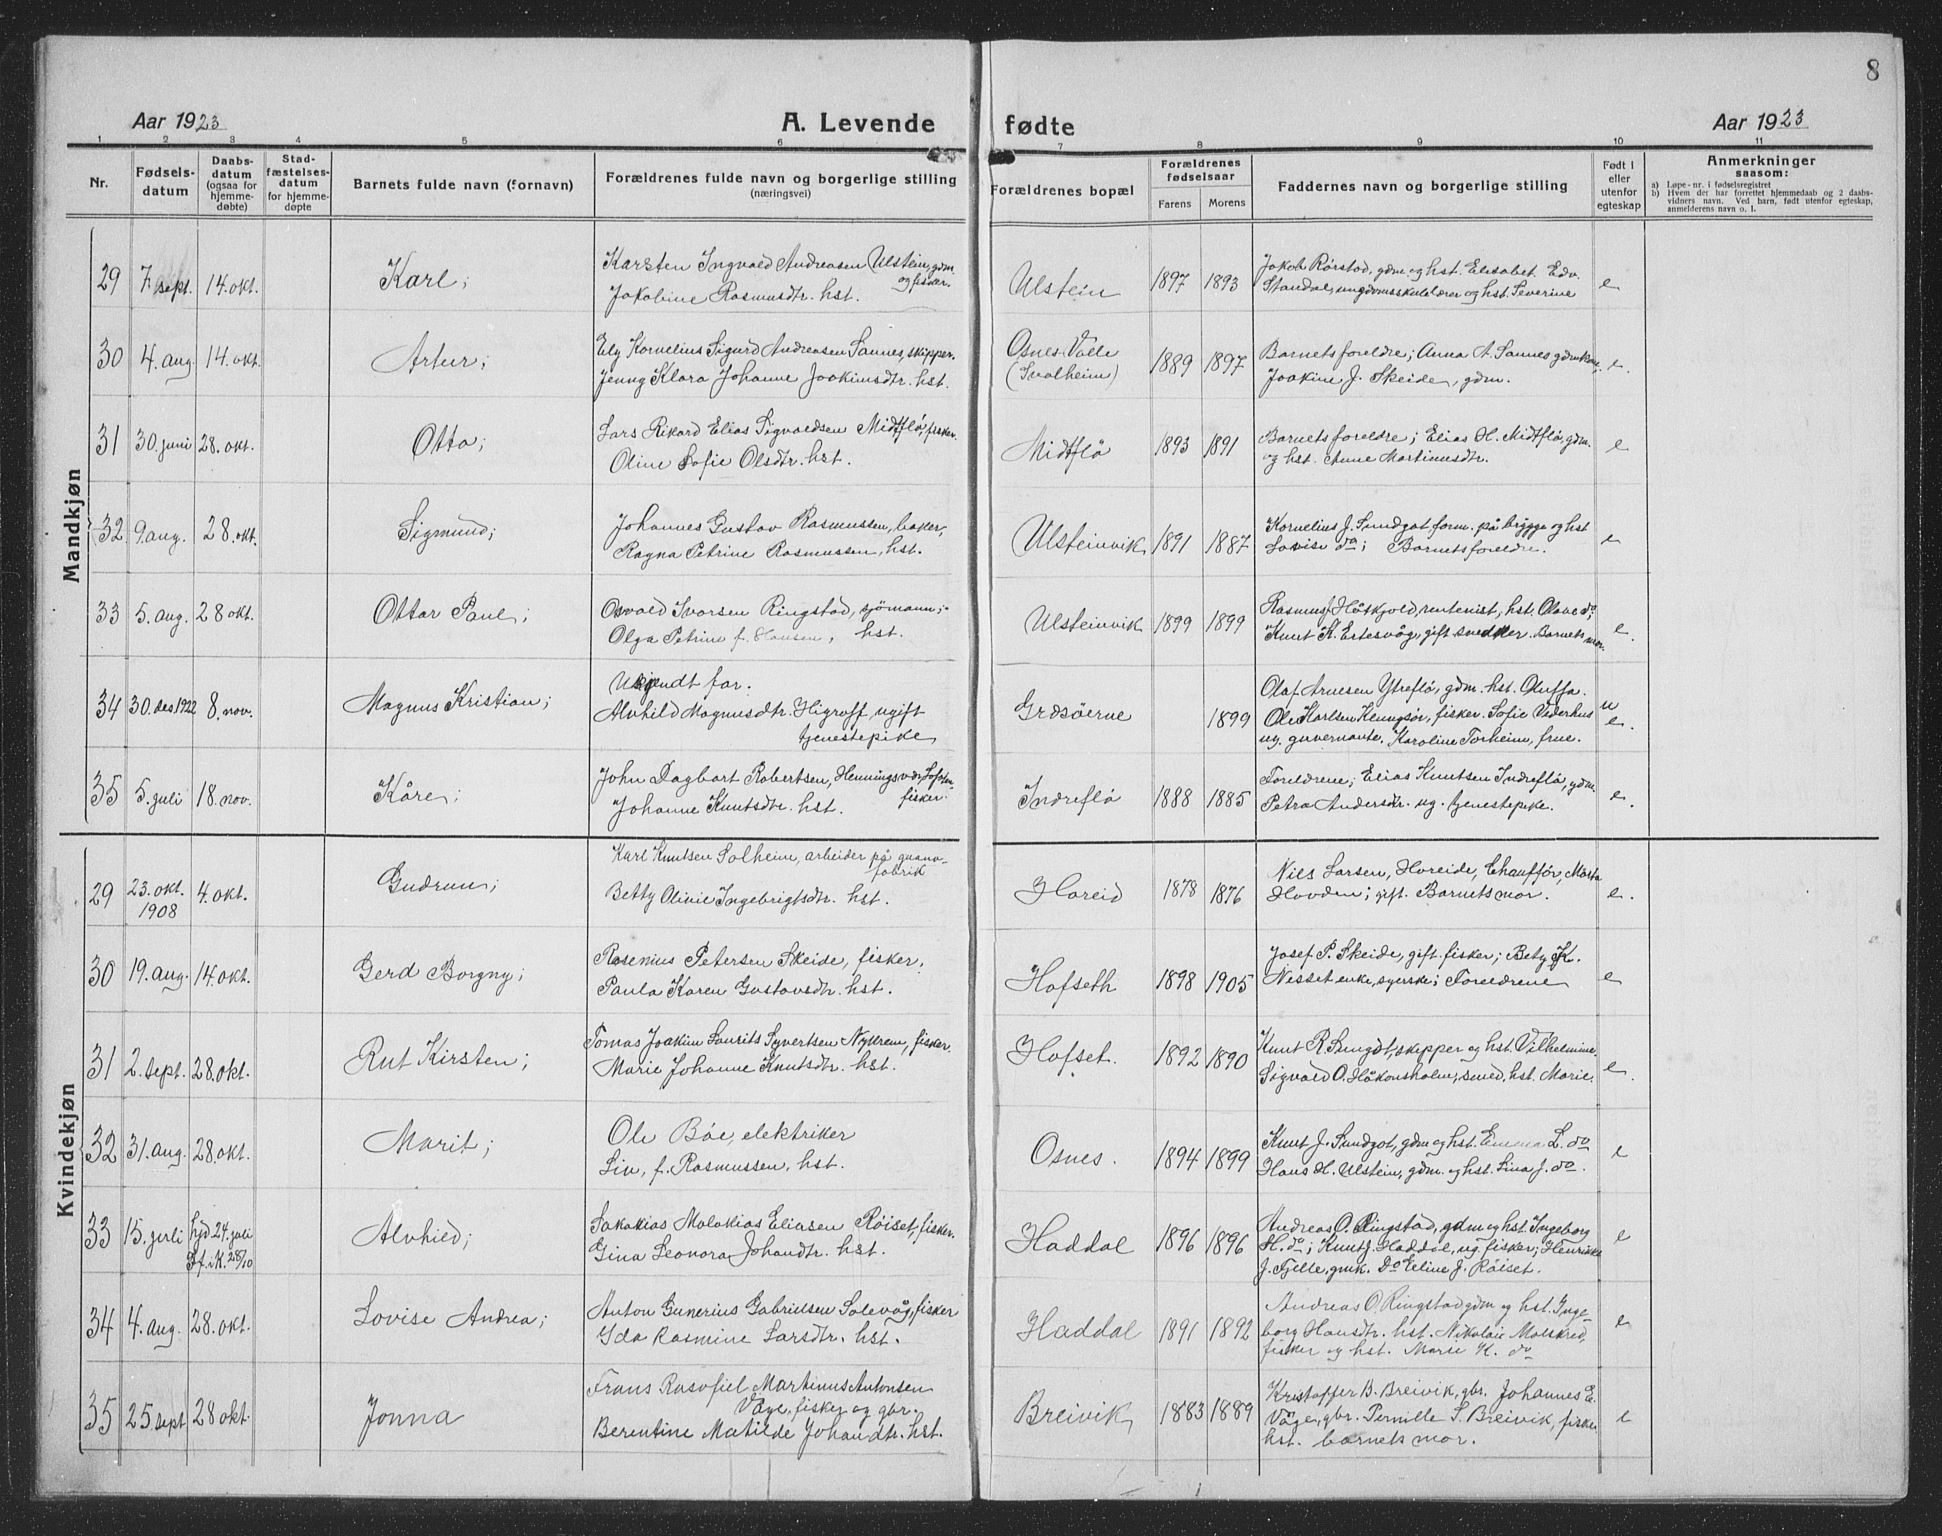 8
Aar 1923
A. Levende fødte
Aar 1923
1 2 3 4 5 6 7 8 9 10 11
Nr.
Fødsels-
datum
Daabs-
datum
(ogsaa for
hjemme-
døbte)
Stad-
fæstelses-
datum
for hjemme-
døpte
Barnets fulde navn (fornavn)
Forældrenes fulde navn og borgerlige stilling
(næringsvei)
Forældrenes bopæl
Forældrenes
fødselsaar
Farens Morens
Faddernes navn og borgerlige stilling
Født i
eller
utenfor
egteskap
Anmerkninger
saasom:
a) Løpe-nr. i fødselsregistret
b) Hvem der har forrettet hjemmedaab og 2 daabs-
vidners navn. Ved barn, født utenfor egteskap,
anmelderens navn o. l.
Mandkjøn
29 7 sept. 14. okt. Karl;
Karsten Ingvald Andreasen Ulstein, gdm.
og fisker.
Jakobine Rasmusdtr. hst.
Ulstein 1897 1893
Jakob Rørstad, gdm og hst. Elisabet. Edv.
Standal, ungdomsskulelærer og hst. Severine
e
30 4. aug. 14. okt. Artur;
Ely Kornelius Sigurd Andreasen Sannes, skipper.
Jenny Klara Johanne Joakimsdtr. hst.
Osnes-Valle
(Svalheim) 1889 1897
Barnets foreldre; Anna A. Sannes gdmkone,
Joakine J. Skeide, gdm.
e.
31 30. juni 28. okt. Otto;
Lars Rikard Elias Sigvaldsen Midtflø, fisker.
Oline Sofie Olsdtr. hst.
Midtflø 1893 1891
Barnets foreldre; Elias H. Midtflø, gdm.
og hst. Anne Martinusdtr.
e
32 9. aug. 28. okt. Sigmund;
Johannes Gustav Rasmussen, baker,
Ragna Petrine Rasmussen, hst.
Ulsteinvik 1891 1887
Kornelius J. Sundgot, form. på brygge og hst
Lovise do; Barnets foreldre.
e
33 5. aug. 28 okt. Ottar Paul;
Osvald Ivarsen Ringstad, sjømann;
Olga Petrine f. Hansen, hst.
Ulsteinvik 1899 1899
Rasmus J Håskjold, rentenist, hst. Olave do;
Knut K. Ertesvåg, gift snedker. Barnets mor.
e.
34 30. des. 1922 8. nov. Magnus Kristian;
Ukjendt far.
Alvhild Magnusdtr. Higraff, ugift
tjenestepike
Grasøerne 1899
Olaf Arnesen Ytreflø, gdm. hst. Oluffa.
Ole Karlsen Klungsør, fisker. Sofie Viderhus
ug. guvernante. Karoline Torheim, frue.
u
e
35 5. juli 18. nov. Kåre;
John Dagbart Robertsen, Henningsvær Lofoten
fisker.
Johanne Knutsdtr. hst.
Indreflø 1888 1885
Foreldrene; Elias Knutsen Indreflø, gdm.
Petra Andersdtr. ug. tjenestepike.
e.
Kvindekjøn
29 23. okt.
1908 4. okt. Gudrun;
Karl Knutsen Solheim, arbeider på guano-
fabrik
Betty Olivie Ingebrigtsdtr. hst.
Hareid 1878 1876
Nils Larsen, Hareide, Chauffør, Marta
Hovden; gift. Barnets mor.
e.
30 19. aug. 14 okt. Gerd Borgny;
Rasenius Petersen Skeide, fisker,
Paula Karen Gustavsdtr. hst.
Hofseth 1898 1905
Josef P. Skeide, gift. fisker; Bety K.
Nesset enke, syerske; Foreldrene
e
31 2. sept. 28. okt. Rut Kirsten;
Tomas Joakim Laurits Syvertsen Nykrem, fisker
Marie Johanne Knutsdtr. hst.
Hofset. 1892 1890
Knut R. Sungot, skipper og hst. Vilhelmine.
Sigvald O. Håkonsholm, smed, hst. Marie.
e.
32 31. aug. 28. okt. Marit;
Ole Bøe, elektriker
Liv, f. Rasmussen, hst.
Osnes. 1894 1899
Knut J. Sundgot, gdm og hst. Emma L. do
Hans H. Ulstein, gdm. og hst. Lina J. do.
e
33 15. juli hjd 24. juli
Stf. i K. 28/10 Alvhild;
Sakarias Malakias Eliasen Røiset, fisker.
Gina Leonora Johandtr. hst.
Haddal 1896 1896
Andreas O. Ringstad, gdm og hst. Ingeborg
H. do; Knut J. Haddal, ug. fisker; Henrikke
J. Fjelle, gmk. Do Eline J. Røiset.
e
34 4. aug. 28. okt. Lovise Andrea;
Anton Gunerius Gabrielsen Solevåg, fisker
Ida Rasmine Larsdtr. hst.
Haddal 1891 1892
Andreas O. Ringstad gdm og hst. Inge-
borg Hansdtr. hst. Nikolai Malskred,
fisker og hst. Marie K. do
e
35 25. sept 28 okt. Jonna
Frans Rasofiel Martinus Antonsen
Våge, fisker og gbr.
Berentine Matilde Johandtr. hst.
Breivik 1883 1889
Kristoffer B. Breivik, gbr. Johannes E.
Våge, gbr. Pernille S. Breivik, fisker
hst. barnets mor.
e